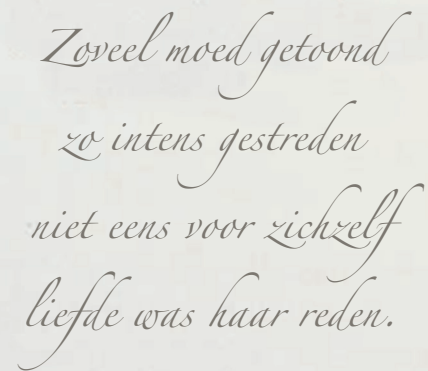 Zoveel moed getoond
zo intens gestreden
niet eens voor zichzelf
liefde was haar reden.